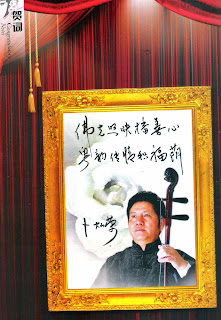 贺词
佛光照映播善心
粤韵传情 福荫
卜灿荣